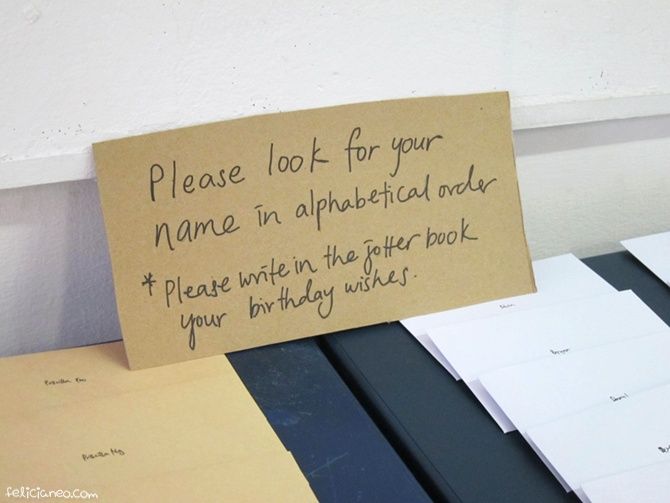 Please look for your
name in alphabetical order
* Please write in the jotter book
your birthday wishes.
Priscilla Ng
felicianeo.com